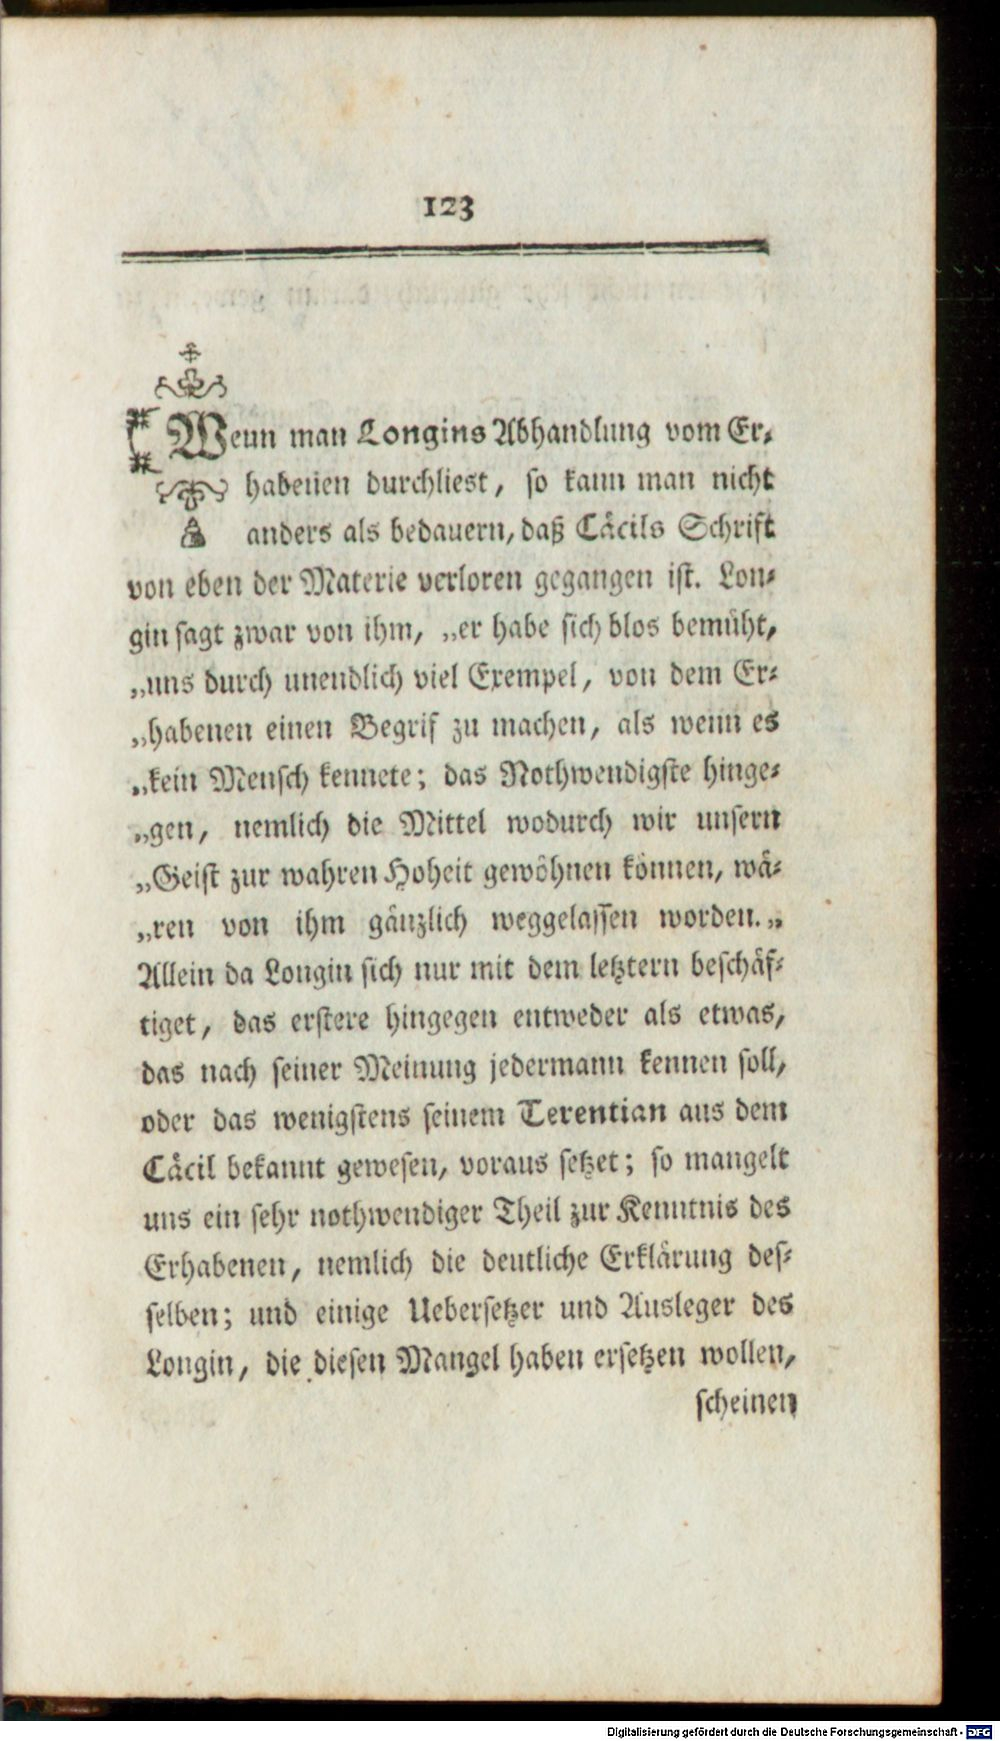 123
Wenn man Longins Abhandlung vom Er-
habenen durchliest, so kann man nicht
anders als bedauern, daß Cäcils Schrift
von eben der Materie verloren gegangen ist. Lon-
gin sagt zwar von ihm, „er habe sich blos bemüht,
„uns durch unendlich viel Exempel, von dem Er-
„habenen einen Begrif zu machen, als wenn es
„kein Mensch kennete; das Nothwendigste hinge-
„gen, nemlich die Mittel wodurch wir unsern
„Geist zur wahren Hoheit gewöhnen können, wä-
„ren von ihm gänzlich weggelassen worden.„
Allein da Longin sich nur mit dem letztern beschäf-
tiget, das erstere hingegen entweder als etwas,
das nach seiner Meinung jedermann kennen soll,
oder das wenigstens seinem Terentian aus dem
Cäcil bekannt gewesen, voraus setzet; so mangelt
uns ein sehr nothwendiger Theil zur Kenntnis des
Erhabenen, nemlich die deutliche Erklärung des-
selben; und einige Uebersetzer und Ausleger des
Longin, die diesen Mangel haben ersetzen wollen,
scheinen
Digitalisierung gefördert durch die Deutsche Forschungsgemeinschaft - DFG